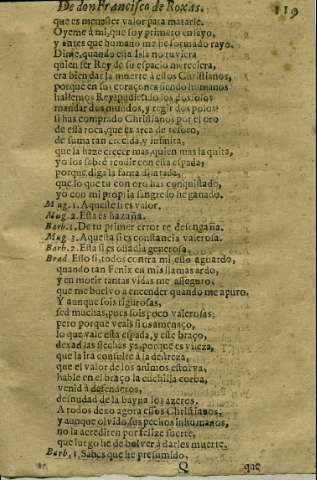 De don Francisco de Roxas. 119
que es menester valor para matarle.
Oyeme à mi, que soy primero ensayo,
y antes que humano me he formado rayo.
Dime, quando esta Isla no tuviera
quien ser Rey de su espacio mereciera,
era bien dar la muerte à estos Christianos,
porque en sus coraçones siendo humanos
hallemos Rey, pudiendo los dos solos
mandar dos mundos, y regir dos polos?
si has comprado Christianos por el oro
de esta roca, que es arca de tesoro,
de suma tan crecida, y infinita,
que la haze crecer mas, quien mas la quita,
yo los sabrè rendir con esta espada;
porque diga la fama dilatada,
que lo que tu con oro has conquistado,
yo con mi propria sangre lo he ganado.
Mug. 1. Aqueste si es valor.
Mug. 2. Esta es hazaña.
Barb. 1. De tu primer error te desengaña.
Mug. 3. Aquesta si es constancia valerosa.
Barb. 2. Esta si es ossadia generosa.
Brad. Esso si, todos contra mi esso aguardo,
quando tan Fenix en mis llamas ardo,
y en morir tantas vidas me asseguro,
que me buelvo à encender quando me apuro.
Y aunque sois rigurosas,
sed muchas, pues sois poco valerosas;
pero porque veais si os amenaço,
lo que vale esta espada, y este braço,
dexad las flechas ya, porque es vileza,
que la ira consulte à la destreza,
que el valor de los animos estorva,
hable en el braço la cuchilla corba,
venid à defenderos,
desnudad de la bayna los azeros.
A todos dexo agora essos Christianos,
y aunque olvido sus pechos inhumanos,
no la acrediten por felize suerte,
que luego he de bolver à darles muerte.
Barb. 1. Sabes que he presumido,
Q que